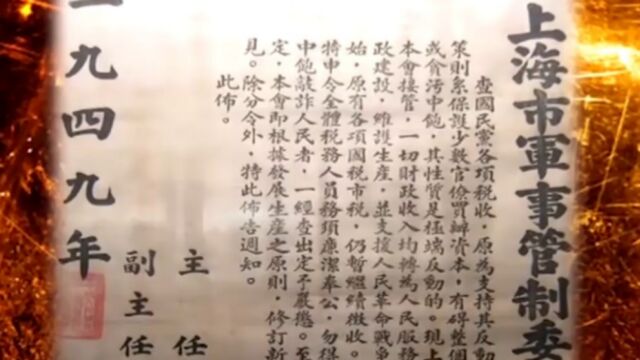 上海市軍事管制委
查國民黨各項稅收，原為支持其反動
策則系保護少數官僚買辦資本，有碍整個
或貪污中飽，其性質是極端反動的。現上
本會接管，一切財政收入均轉為人民服務
政建設，維護生產，並支援人民革命戰爭
始，原有各項國稅市稅，仍暫繼續徵收。
特申令全體稅務人員務須廉潔奉公，勿得
中飽敲詐人民者，一經查出定予嚴懲。至
定，本會即根據發展生產之原則，修訂新
見。除分令外，特此佈告週知。
此佈。
主任
副主任
一九四九年